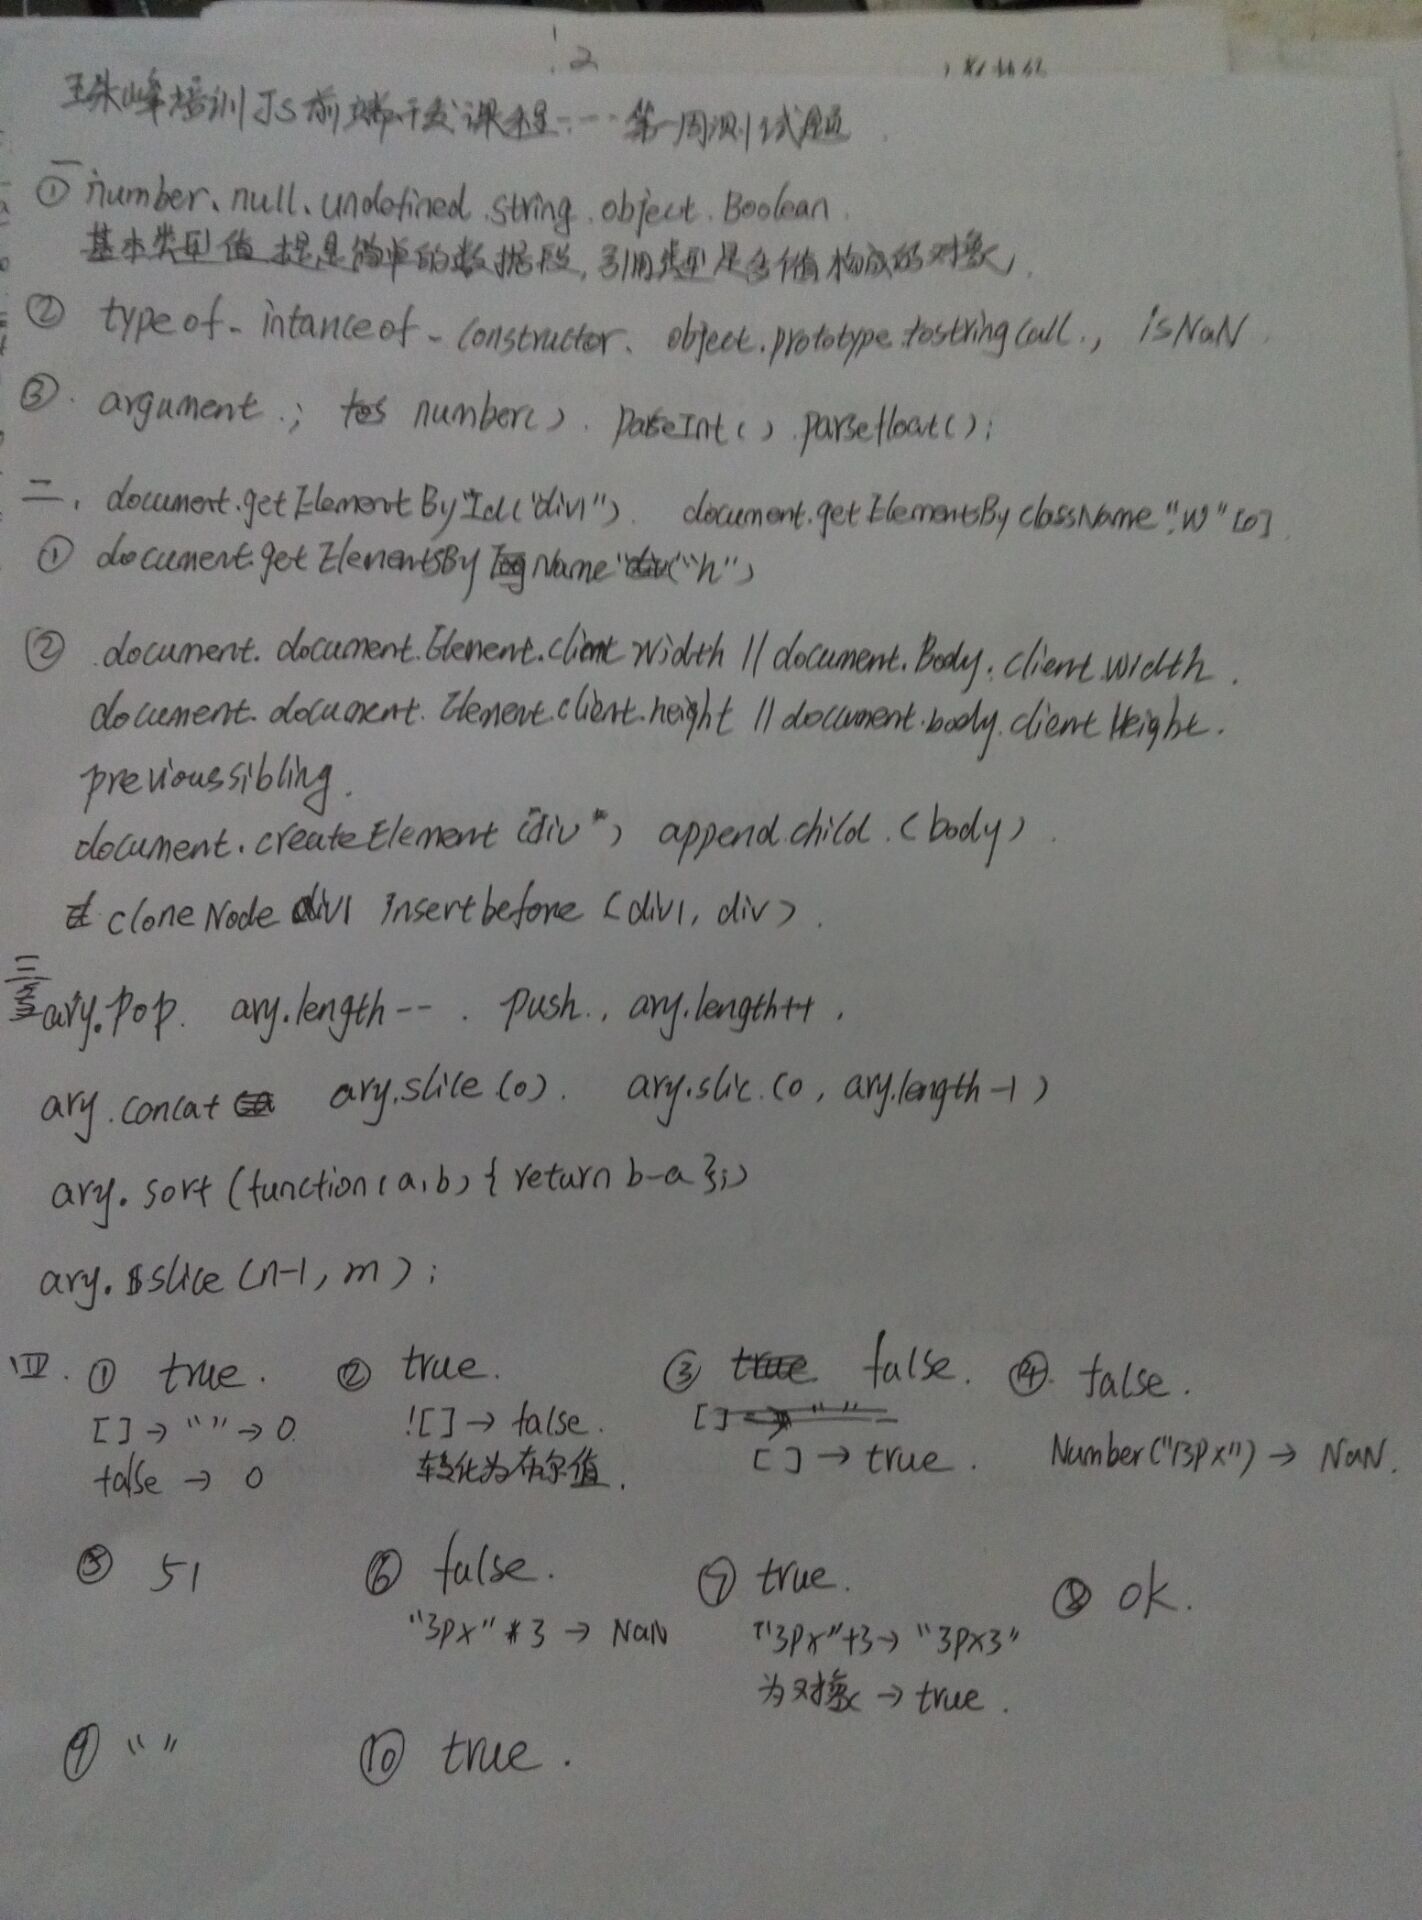 2
王朱峰培训JS前端开发课程····第一周测试题
一
① number、null、undefined.string.object.Boolean.
基本类型值 提是简单的数据段,引用类型是多个值构成的对象,
② typeof- intanceof - constructor、object.prototype.tostring call., isNaN.
③. argument.; number(). parseInt().parsefloat();
二、document.getElementById("div1"). document.getElementsByclassName"w"[0].
① document.getElementsBy Name ("h")
② .document. document.Element.client Width || document.Body.client.width.
document. document. Element.client.height || document.body.client Height.
previoussibling.
document.createElement (div") append.child.(body).
cloneNode div1 insertbefore (div1, div).
三
ary.pop. ary.length-- . push., ary.length++ .
ary.concat ary.slice(0). ary.slic.(0, ary.length-1)
ary. sort (function(a,b) { return b-a };)
ary.slice (n-1, m) ;
IV. ① true. ② true. ③ true false. ④. false.
[]→""→0. ![]→false. []→""
false → 0 转化为布尔值. []→true. Number("13px")→ NaN.
⑤ 51 ⑥ false. ⑦ true. ⑧ ok.
"3px"*3 → NaN "3px"+3→ "3px3"
为对象→true.
⑨ "" ⑩ true.